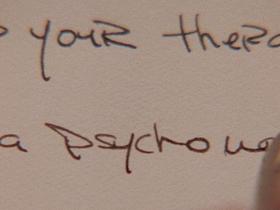 your thera
a psycho